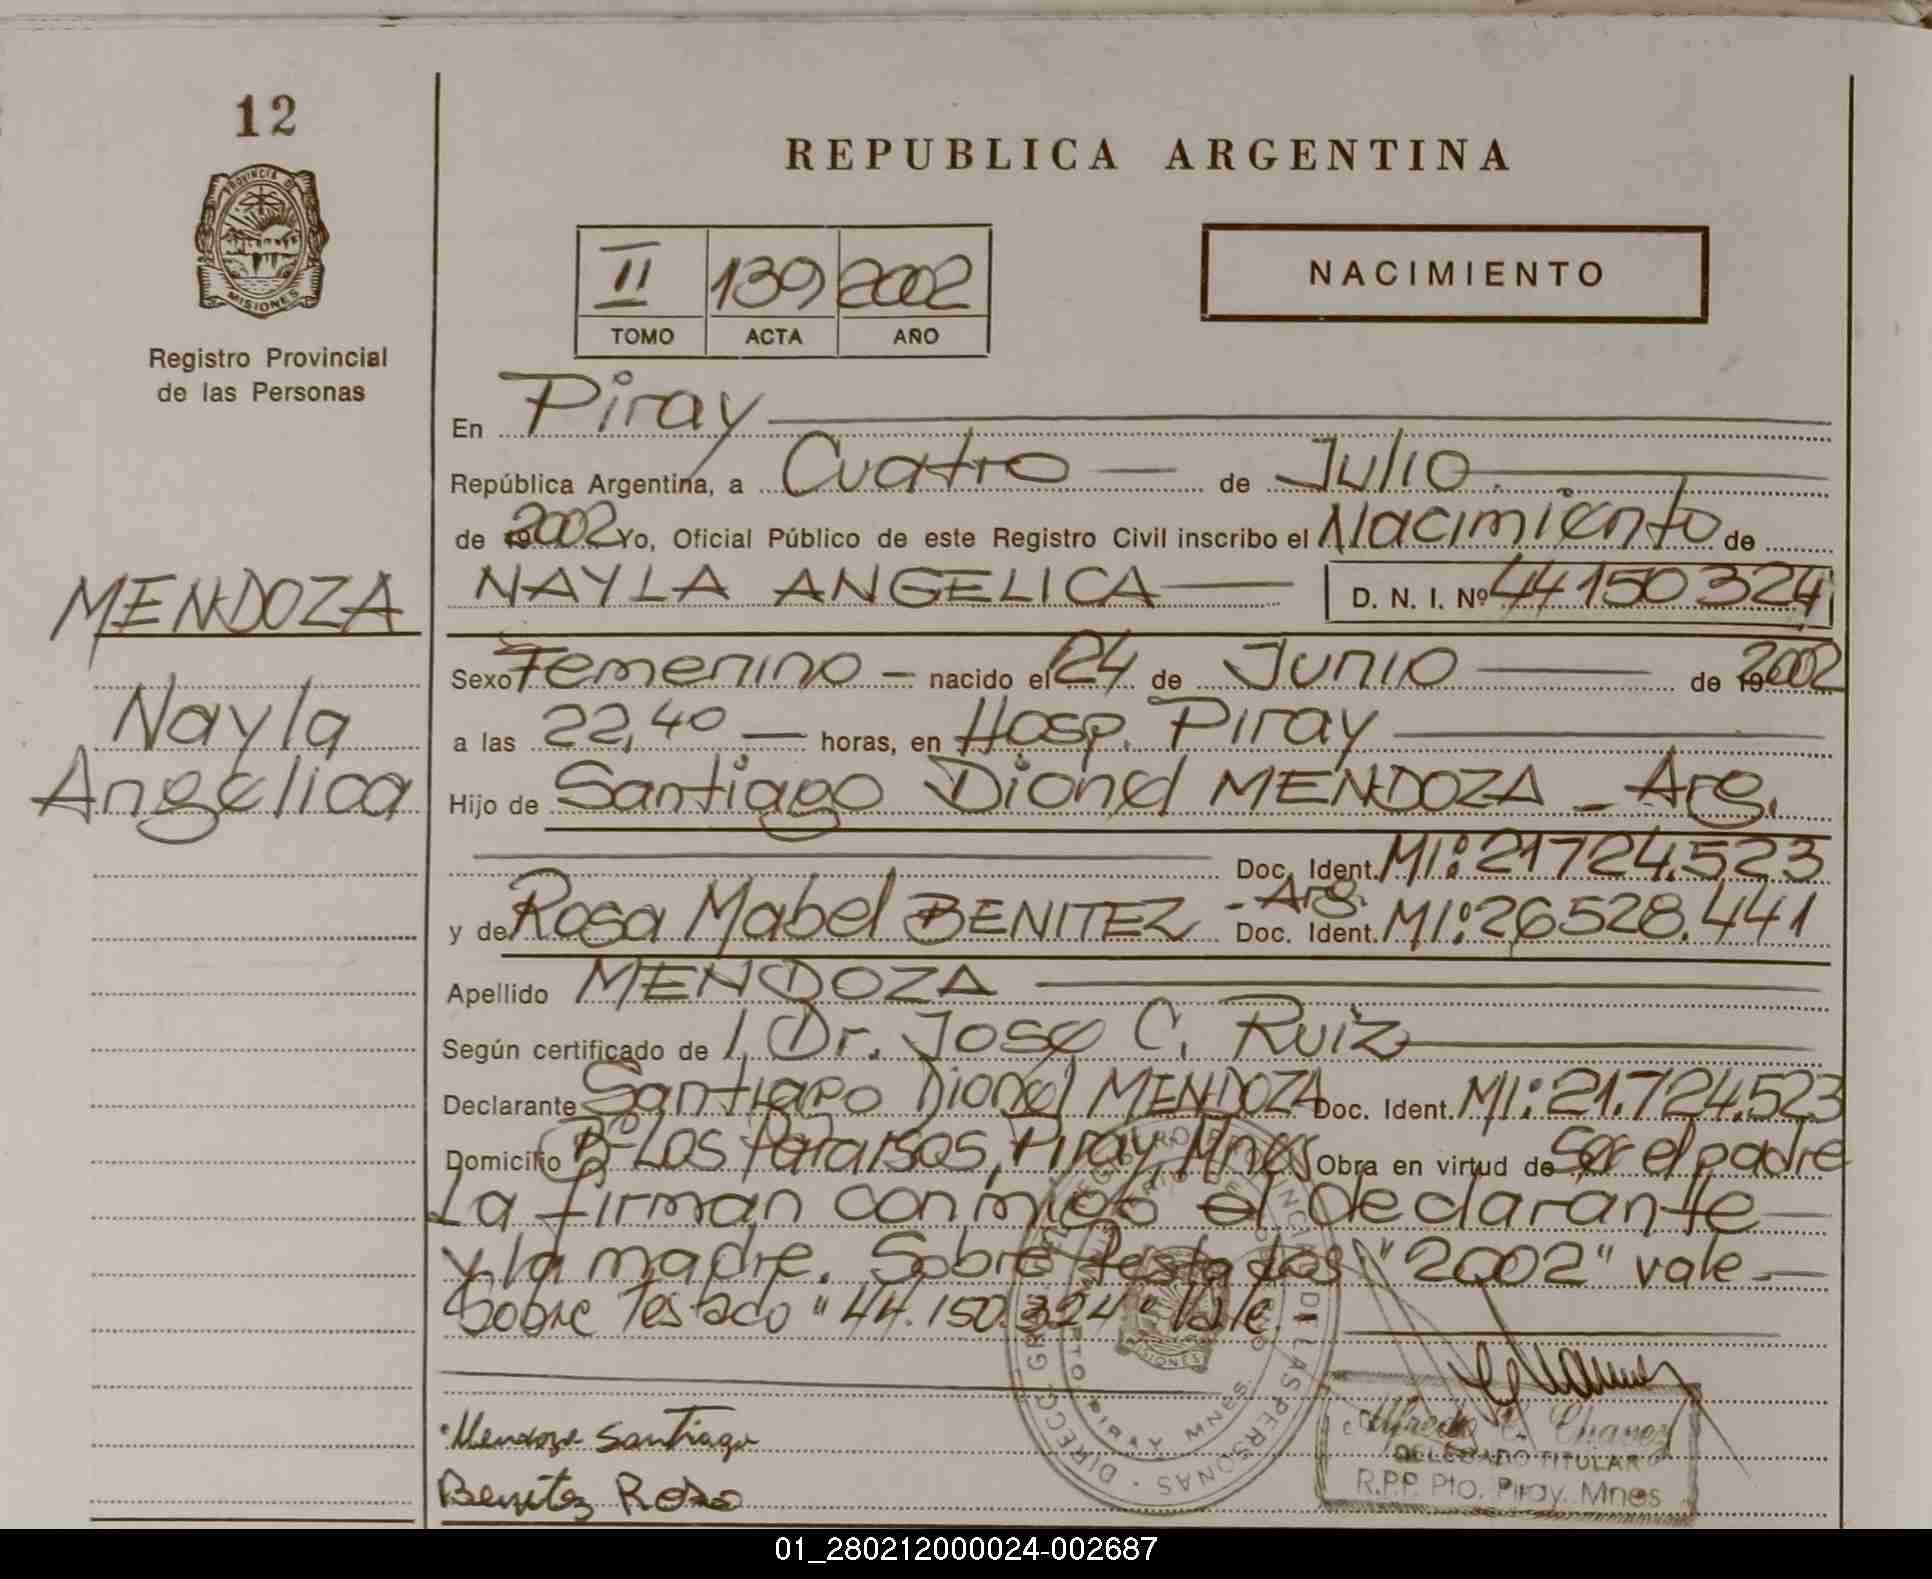 12
PROVINCIA DE
MISIONES
Registro Provincial
de las Personas
MENDOZA
Nayla
Angélica
REPUBLICA ARGENTINA
II 139 2002
TOMO ACTA AÑO
NACIMIENTO
En Piray
República Argentina, a Cuatro de Julio
de 2002 Yo, Oficial Público de este Registro Civil inscribo el Nacimiento de
NAYLA ANGELICA D. N. I. Nº 44150324
Sexo Femenino - nacido el 24 de Junio de 2002
a las 22,40 horas, en Hosp. Piray
Hijo de Santiago Dionel MENDOZA - Arg.
Doc. Ident. MI: 21724.523
y de Rosa Mabel BENITEZ - Arg. Doc. Ident. MI: 26528.441
Apellido MENDOZA
Según certificado de 1, Dr. José C. Ruiz
Declarante Santiago Dionel MENDOZA Doc. Ident. MI: 21.724.523
Domicilio Bº Los Paraisos, Piray, Mnes Obra en virtud de Ser el padre
La firman conmigo el declarante
y la madre. Sobre testados "2002" vale
Sobre Testado "44.150.324" Vale.-
Mendoza Santiago
Benitez Rosa
Alfredo C. Chavez
DELEGADO TITULAR
R.P.P. Pto. Piray. Mnes
01_280212000024-002687